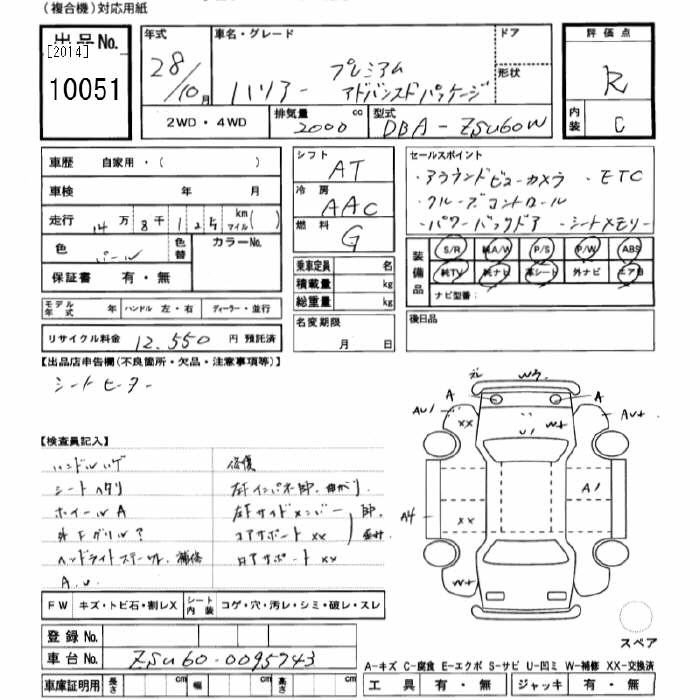 (複合機)対応用紙
出品No.
[2014]
10051
年式
28/10月
車名・グレード
ハリアー プレミアム
アドバンスドパッケージ
ドア
形状
評価点
R
内装
C
2WD・4WD
排気量
2000 cc
型式
DBA-ZSU60W
車歴 自家用・( )
車検 年 月
走行 14万 8千 1 km マイル( )
色 パール 色替 カラーNo.
保証書 有・無
モデル年式 年 ハンドル 左・右 ディーラー・並行
リサイクル料金 12,550 円 預託済
シフト AT
冷房 AAC
燃料 G
乗車定員 名
積載量 kg
総重量 kg
名変期限
月 日
セールスポイント
・アラウンドビューカメラ ・ETC
・クルーズコントロール
・パワーバックドア ・シートメモリー
装備品
S/R 純A/W P/S P/W ABS
純TV 純ナビ 革シート 外ナビ エアB
ナビ型番:
後日品
【出品店申告欄(不良箇所・欠品・注意事項等)】
シートヒーター
【検査員記入】
ハンドルハゲ
シートヘタリ
ホイールA
外Fグリル?
ヘッドライトスチール 補修
A.U.
修復
左Fインパネ部、曲がり
左Fサイドメンバー
コアサポートXX
ロアサポートXX
元 W3
A A
AU1 XX U1 W+ AU+
A4 XX A1
W+
スペア
FW キズ・トビ石・割レX
シート内装 コゲ・穴・汚レ・シミ・破レ・スレ
登録No.
車台No. ZSU60-0095743
車庫証明用 長さ cm 幅 cm 高さ cm
A-キズ C-腐食 E-エクボ S-サビ U-凹ミ W-補修 XX-交換済
工具 有・無 ジャッキ 有・無